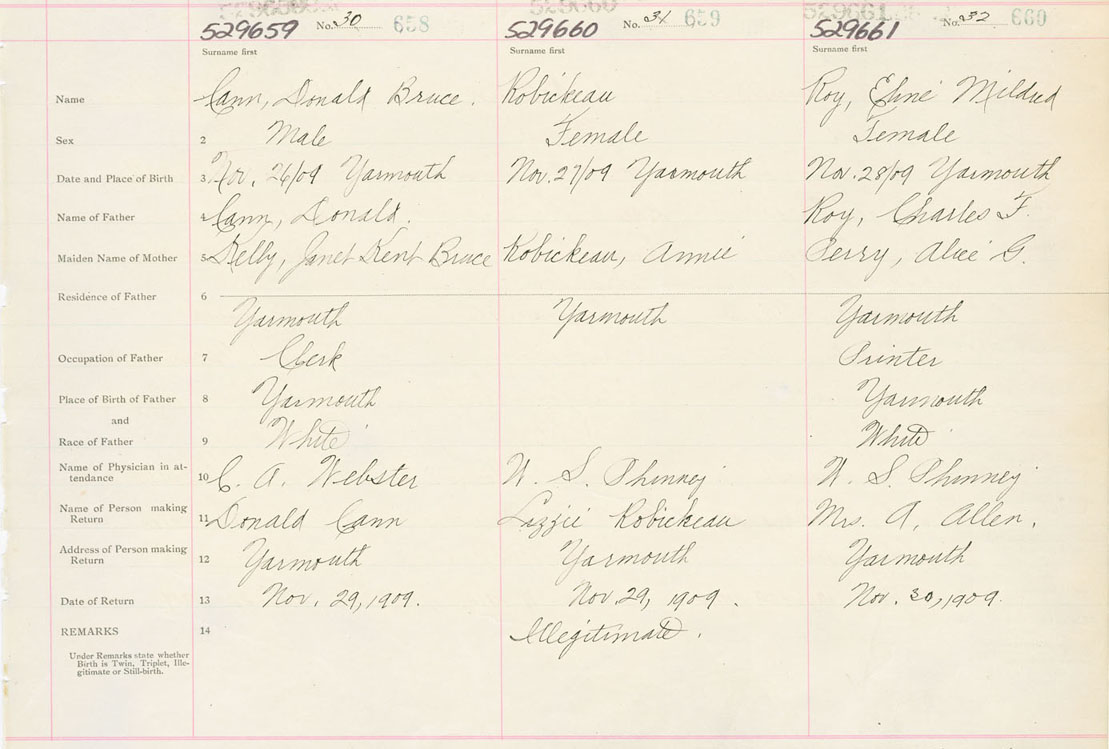 529659 No. 30 658 529660 No. 31 659 529661 No. 32 660
Surname first Surname first Surname first
Name Cann, Donald Bruce. Robickeau Roy, Eline Mildred
Sex 2 Male Female Female
Date and Place of Birth 3 Nov. 26/09 Yarmouth Nov. 27/09 Yarmouth Nov. 28/09 Yarmouth
Name of Father 4 Cann, Donald. Roy, Charles F.
Maiden Name of Mother 5 Kelly, Janet Kent Bruce Robickeau, Annie Perry, Alice G.
Residence of Father 6
Yarmouth Yarmouth Yarmouth
Occupation of Father 7 Clerk Printer
Place of Birth of Father 8 Yarmouth Yarmouth
and
Race of Father 9 White White
Name of Physician in at-
tendance 10 C. A. Webster W. S. Phinney W. S. Phinney
Name of Person making
Return 11 Donald Cann Lizzie Robickeau Mrs. A. Allen.
Address of Person making
Return 12 Yarmouth Yarmouth Yarmouth
Date of Return 13 Nov. 29, 1909. Nov 29, 1909. Nov. 30, 1909.
REMARKS 14 Illegitimate.
Under Remarks state whether
Birth is Twin, Triplet, Ille-
gitimate or Still-birth.